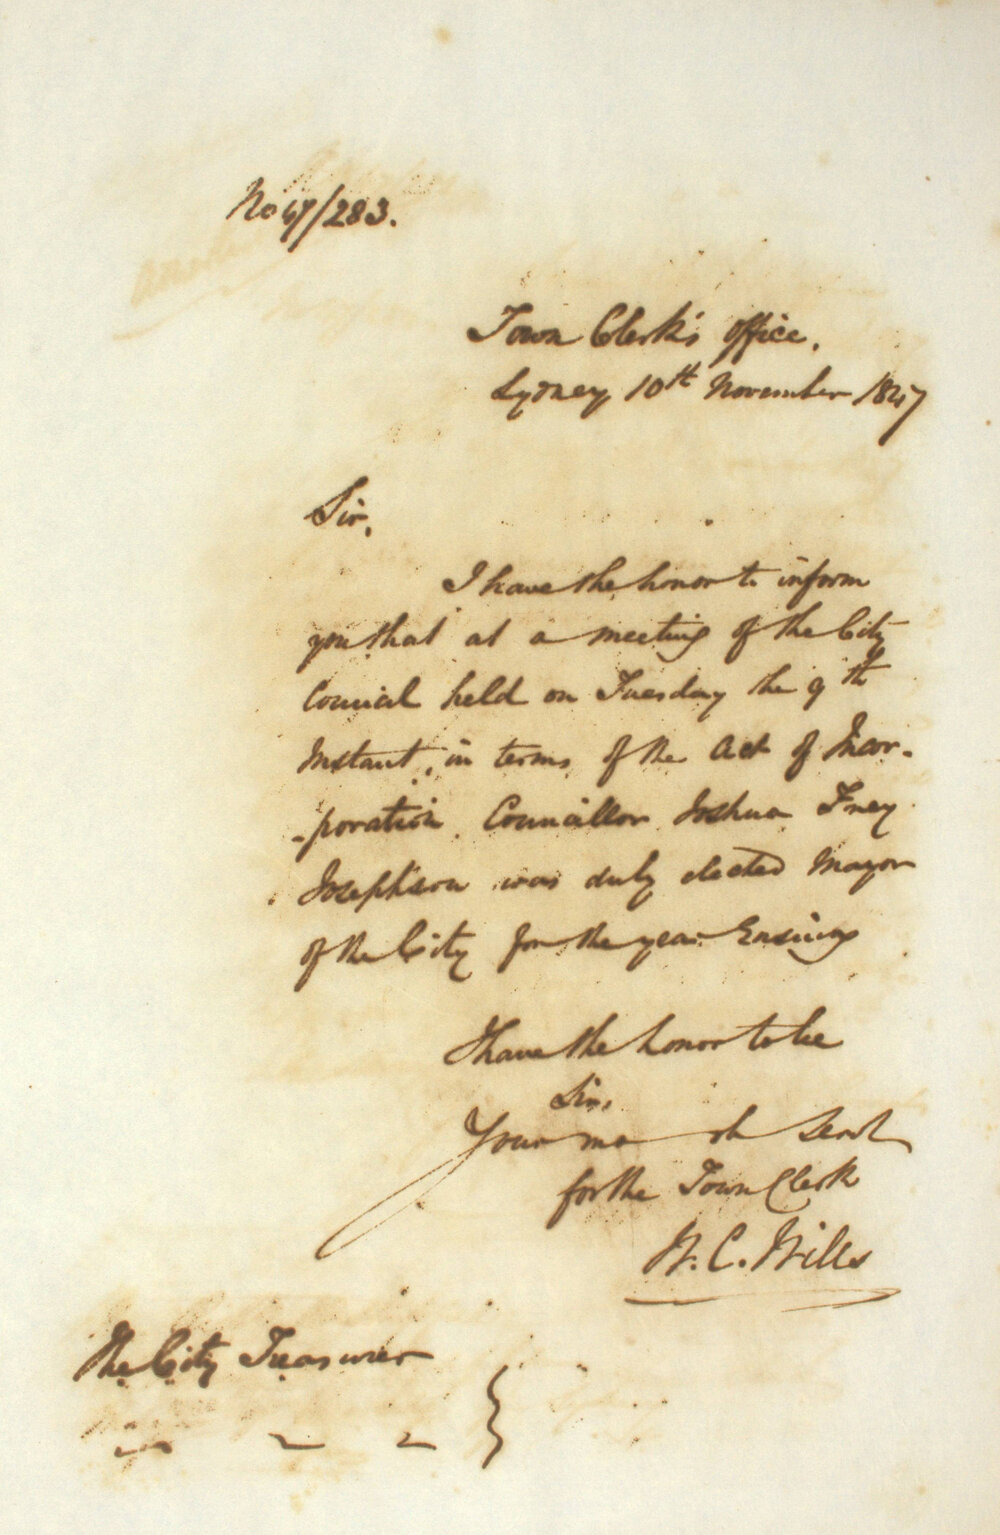 No 47/283.
Town Clerk's Office.
Sydney 10th November 1847
Sir,
I have the honor to inform
you that at a meeting of the City
Council held on Tuesday the 9th
Instant, in terms of the Act of Incor-
-poration, Councillor Joshua Frey
Josephson was duly elected Mayor
of the City for the year Ensuing
I have the honor to be
Sir,
Your mo
for the Town Clerk
W. C. Wills
The City Treasurer